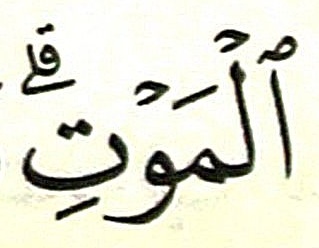 ٱلْمَوْتِ ۗ